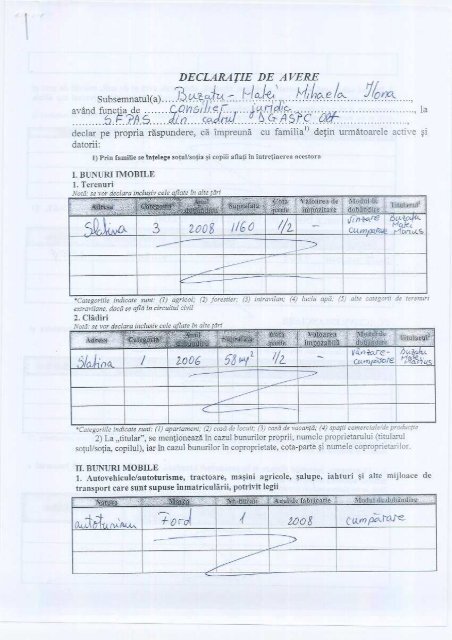 DECLARAŢIE DE AVERE
Subsemnatul(a)....Buzatu - Matei Mihaela Ilona....,
având funcţia de ....consilier juridic...., la
....S.F.P.A.S. din cadrul D.G.A.S.P.C. Olt....,
declar pe propria răspundere, că împreună cu familia1) deţin următoarele active şi
datorii:
1) Prin familie se înţelege soţul/soţia şi copiii aflaţi în întreţinerea acestora
I. BUNURI IMOBILE
1. Terenuri
Notă: se vor declara inclusiv cele aflate în alte ţări
Adresa Categoria* Anul dobândirii Suprafaţa Cota-parte Valoarea de impozitare Modul de dobândire Titularul2
Slatina 3 2008 1160 1/2 - vînzare cumpărare Buzatu Matei Marius
*Categoriile indicate sunt: (1) agricol; (2) forestier; (3) intravilan; (4) luciu apă; (5) alte categorii de terenuri
extravilane, dacă se află în circuitul civil
2. Clădiri
Notă: se vor declara inclusiv cele aflate în alte ţări
Adresa Categoria* Anul dobândirii Suprafaţa Cota-parte Valoarea impozabilă Modul de dobândire Titularul2
Slatina 1 2006 58 m2 1/2 - vânzare - cumpărare Buzatu Matei Marius
*Categoriile indicate sunt: (1) apartament; (2) casă de locuit; (3) casă de vacanţă; (4) spaţii comerciale/de producţie
2) La „titular”, se menţionează în cazul bunurilor proprii, numele proprietarului (titularul
soţul/soţia, copilul), iar în cazul bunurilor în coproprietate, cota-parte şi numele coproprietarilor.
II. BUNURI MOBILE
1. Autovehicule/autoturisme, tractoare, maşini agricole, şalupe, iahturi şi alte mijloace de
transport care sunt supuse înmatriculării, potrivit legii
Natura Marca Nr. bucăţi Anul de fabricaţie Modul de dobândire
autoturism Ford 1 2008 cumpărare